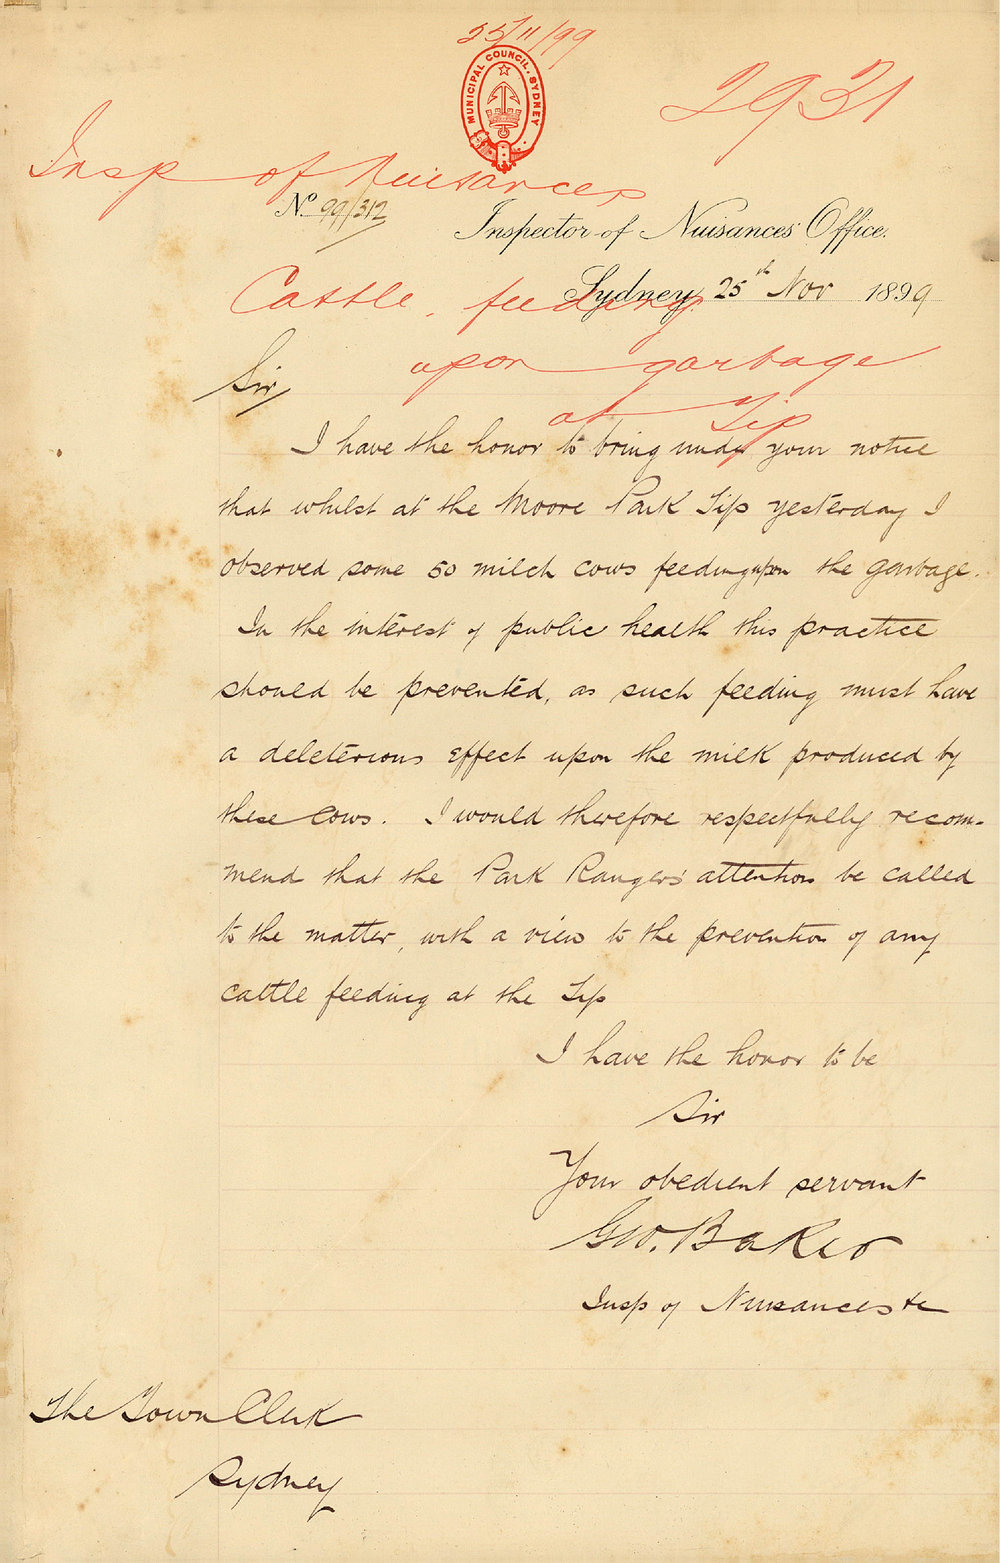 25/11/99
MUNICIPAL COUNCIL. SYDNEY
2931
Insp of Nuisances
No 99/312
Inspector of Nuisances Office.
Sydney 25th Nov 1899
Cattle feeding
upon garbage
at Tip
Sir
I have the honor to bring under your notice
that whilst at the Moore Park Tip yesterday I
observed some 50 milch cows feeding upon the garbage.
In the interest of public health this practice
should be prevented, as such feeding must have
a deleterious effect upon the milk produced by
these cows. I would therefore respectfully recom-
mend that the Park Rangers' attention be called
to the matter, with a view to the prevention of any
cattle feeding at the Tip
I have the honor to be
Sir
Your obedient servant
Geo. Baker
Insp of Nuisances &c
The Town Clerk
Sydney